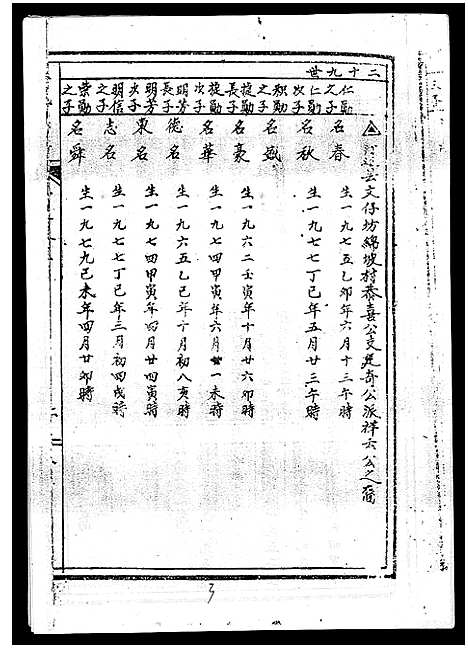 二十九世
文仔坊綿坡村恭喜公支 奇公派祥云公之裔
仁勛之子 名春 生一九七五乙卯年六月十三午時
仁勛次子 名秋 生一九七七丁巳年五月廿三午時
勛之子 名盛
旋勛長子 名豪 生一九六二壬寅年十月廿六卯時
旋勛次子 名華 生一九七四甲寅年六月廿一未時
明芳長子 德名 生一九六五乙巳年十月初八亥時
明芳次子 東名 生一九七四甲寅年四月廿四寅時
明信之子 志名 生一九七七丁巳年三月初四戌時
崇勛之子 名舜 生一九七九己未年四月廿卯時
3